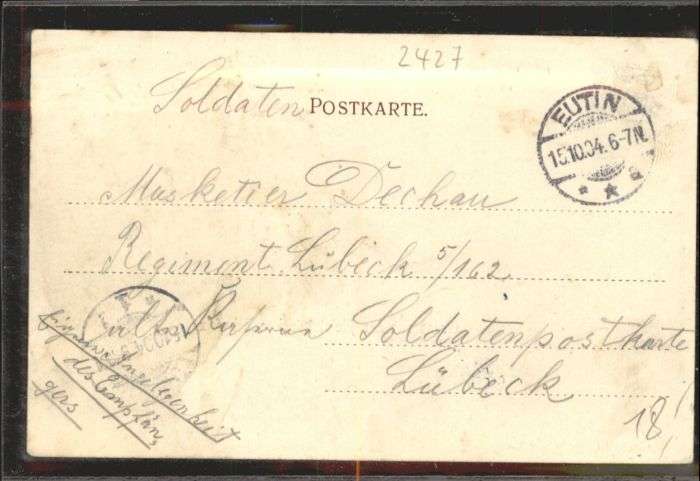 2427
Soldaten POSTKARTE.
EUTIN
15.10.04. 6-7N.
Musketier Dechau
Regiment Lübeck 5/162
alte Kaserne Soldatenpostkarte
Lübeck
Eigene Angelegenheit
des Empfän
gers
18,